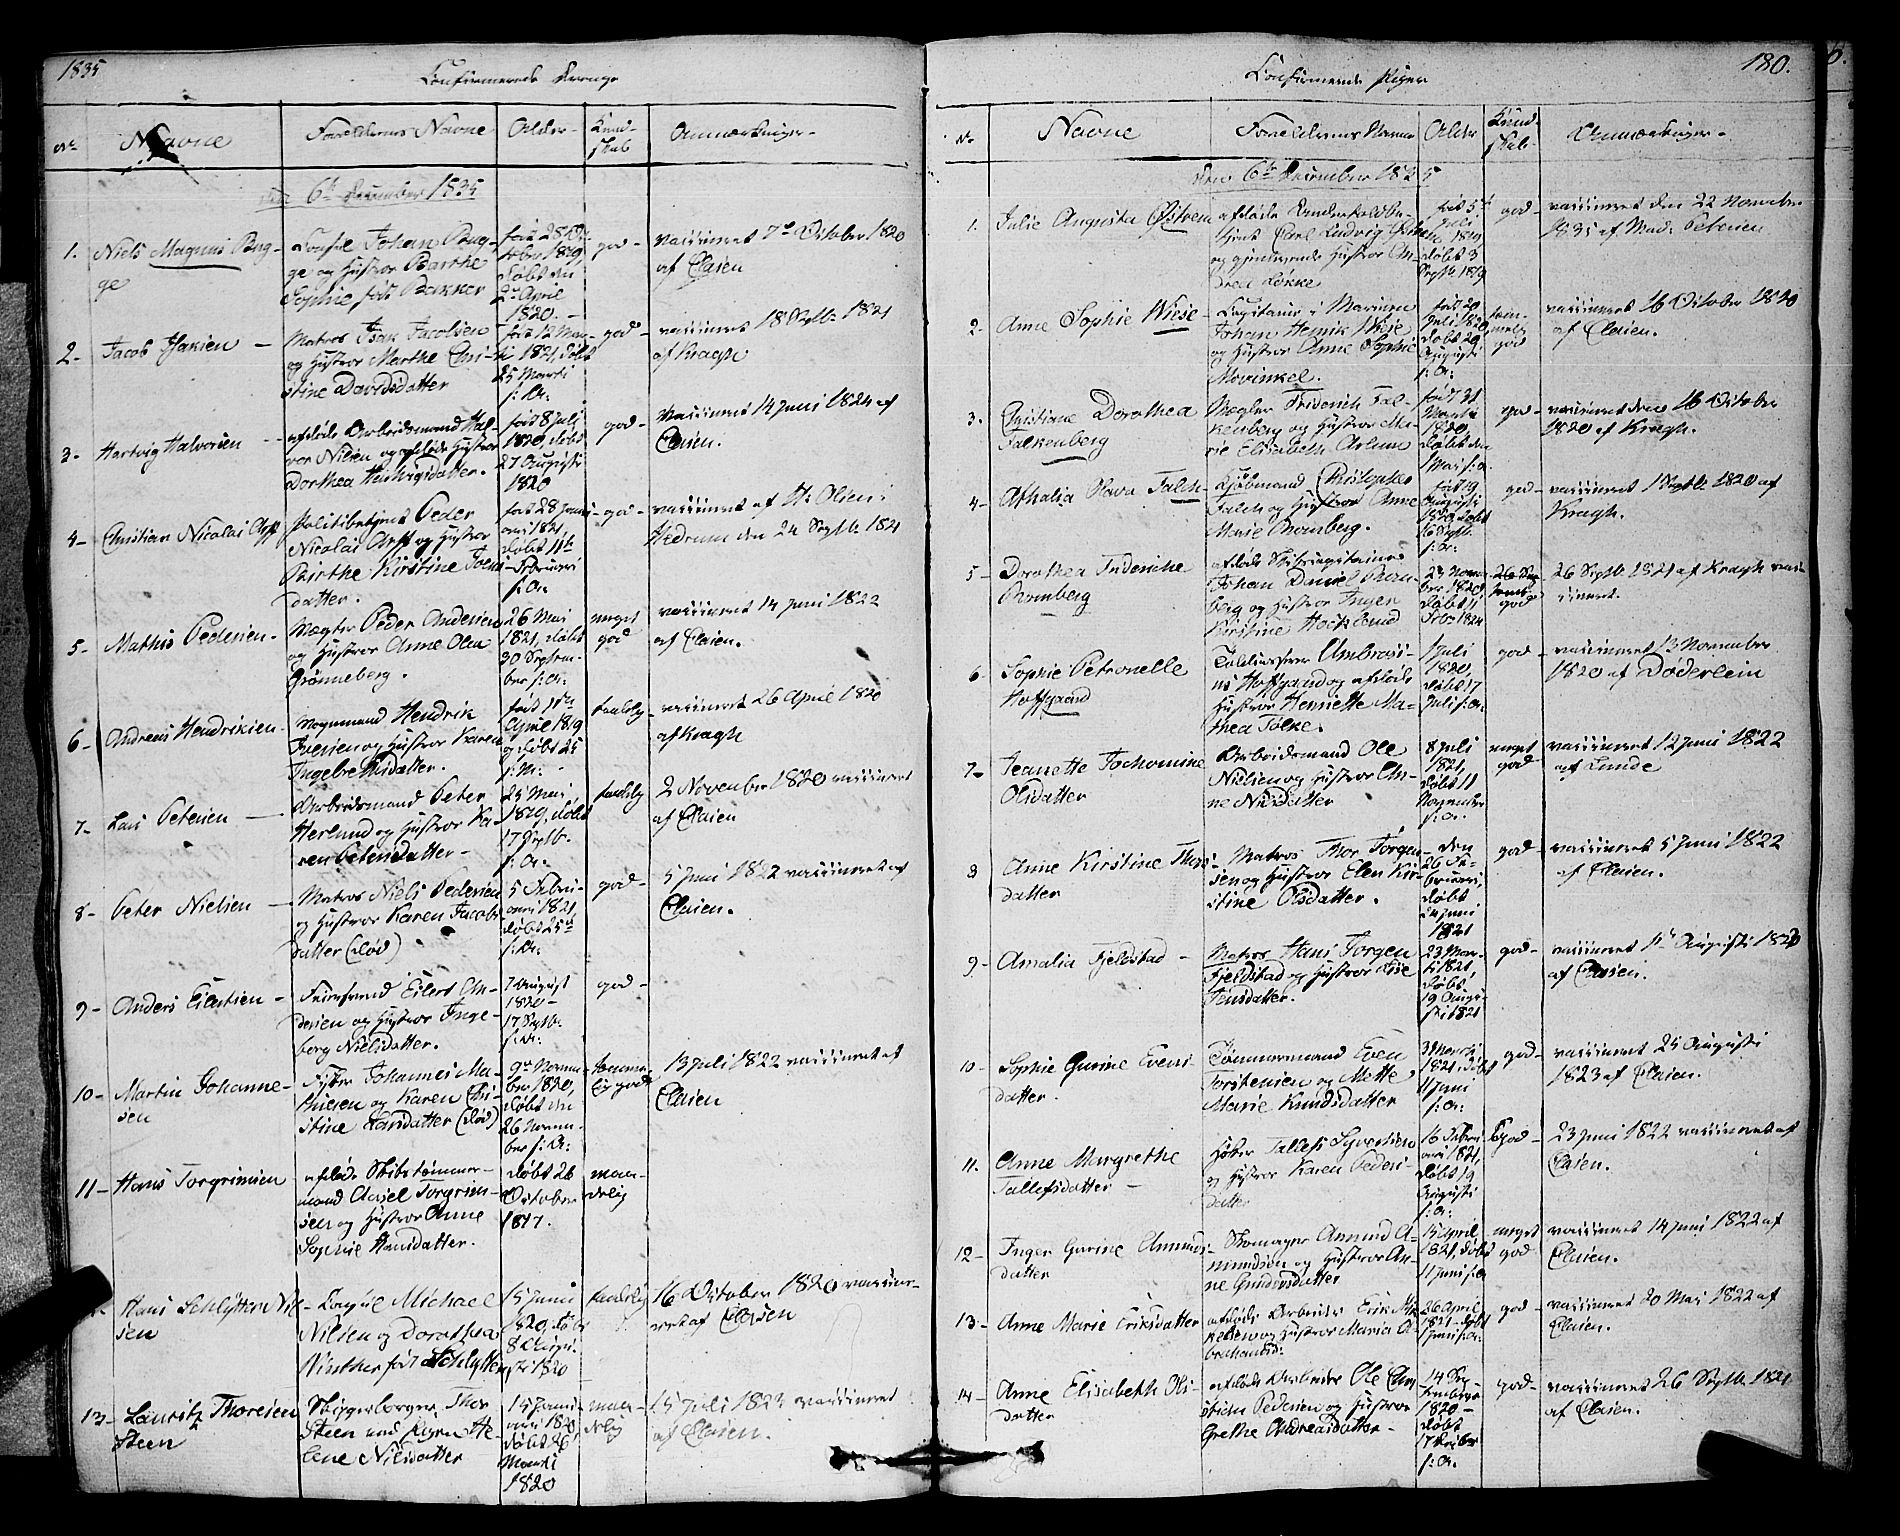 1835
Confirmerede Drenge
No. Navne Forældrenes Navne Alder Kund-
skab Anmærkninger
den 6te December 1835
1. Niels Magnus Bug-
ge
Consul Johan Bug-
ge og Hustroe Barthe
Sophie født Bakker
født 28 Oc-
tober 1819,
døbt den
2den April
1820.
god
vaccineret 7de October 1820
af Clasen
2 Jacob Isaksen
Matros Isak Jacobsen
og Hustroe Marthe Chri-
stine Davidsdatter
født 12 Mar-
ti 1821, døbt
25 Marti
s: A:
god
vaccineret 18 Septb: 1821
af Kragh
3 Hartvig Halvorsen
afdøde Arbeidsmand Hal-
vor Nilsen og afdøde Hustroe
Dorthea Hartvigsdatter.
født 8 juli
1820, døbt
27 Augusti
1820
god
vaccineret 14 juni 1824 af
Clasen.
4 Christian Nicolai Arff
Politibetjent Peder
Nicolai Arff og Hustroe
Birthe Kirstine Joens-
datter.
født 28 janu-
ari 1821,
døbt 11te
Februari
s: A:
god
vaccineret af H: Olsen i
Hedrum den 24 Septb: 1821
5 Mathis Pedersen
Mægler Peder Andersen
og Hustroe Anne Olea
Grønneberg.
26 Mai
1821, døbt
30 Septem-
ber s: A:
meget
god
vaccineret 14 juni 1822
af Clasen.
6 Andreas Hendriksen
Vognmand Hendrik
Iversen og Hustroe Karen
Ingebrethsdatter.
født 11te
April 1819
og døbt 25
s: M:
taalelig
vaccineret 26 April 1820
af Kragh
7 Lars Petersen
Arbeidsmand Peter
Herlund og Hustroe Ka-
ren Petersdatter
25 Mai
1819, døbt
17 Septb.
s: A:
taalelig
2 November 1820 vaccineret
af Clasen
8 Peter Nielsen
Matros Niels Pedersen
og Hustroe Karen Jacobs
datter (død)
5 Febru-
ari 1821,
døbt 25de
s: A:
god
5 juni 1822 vaccineret af
Clasen.
9 Anders Eilertsen
Eilert An-
dersen og Hustroe Inge-
borg Nielsdatter.
7 August
1820
17 Septb.
s: A:
god
10 Martin Johanne-
sen
Fisker Johannes Ma-
thiesen og Karen Chri-
stine Larsdatter (død)
9de Novem-
ber 1820,
døbt den
26 Novem-
ber s: A:
temme-
lig god
13 juli 1822 vaccineret af
Clasen
11 Hans Torgrimsen
afdøde Skibstømmer-
mand Axsel Torgrim-
sen og Hustroe Anne
Sophie Hansdatter.
døbt 26
October
1817.
maa-
delig
Hans Schlytter Nil-
sen
Consul Michael
Nilsen og Dorothea
Winther født Schlytter
15 Junii
1820, døbt
8 Augu-
sti 1820
taalelig
16 October 1820 vaccine-
ret af Clasen
13 Lauritz Thoresen
Steen
Skipperborger Thor
Steen und Karen He-
lene Nilsdatter
15 Janu-
ari 1820
døbt 26
Marti
1820
maa-
delig
15 Juli 1823 vaccineret
af Clasen.
180.
Confirmerede Piger
No. Navne Forældrenes Navne Alder Kund-
skab Anmærkninger
den 6te December 1835
1. Julie Augusta Østrem
og gjenlevende Hustroe An-
drea Løkke
født 5te
Juli
1819
døbt 3
Septb 1819
god
vaccineret den 22 November
1835 af Mad: Petersen
2 Anne Sophie Wiese
Capitaine i Marinen
Johan Henrik Wiese
og Hustroe Anne Sophie
Movinkel.
født 20
Juli 1820
døbt 29
Augusti
s: A:
tem-
melig
god
vaccineret 16 October 1820
af Clasen.
3. Christiane Dorothea
Falkenberg
Mægler Friderich Fal-
kenberg og Hustroe Ma-
rie Elisabeth
født 31
Martii
1820,
døbt den
1 Mai s: A.
god
vaccineret den 16 October
1820 af Kragh.
4 Athalia Olava Falch
Kjøbmand
Falch og Hustroe Anne
Marie Bromberg.
født 19
Augusti
1820, døbt
16 Septb.
s: A:
god
vaccineret 1 Septb 1820 af
Kragh.
5 Dorothea Friderikke
Bromberg
afdøde Skibscapitaine
Johan Daniel Brom-
berg og Hustroe Inger
Kirstine Hocklund
23 Novem-
ber 1820,
døbt 11
Febr 1821
god
26 Septb. 1821 af Kragh vacci-
neret.
6 Sophie Petronelle
Hoffgaard
Toldinsperr Ambrosi-
us Hoffgaard og afdøde
Hustroe Henriette Ma-
thea Tolke.
1 Juli
1820,
døbt 17
Juli s: A:
god
vaccineret 13 November
1820 af Døderlein
7 Jeanette Jochomine
Olsdatter
Arbeidsmand Ole
Nielsen og Hustroe An-
ne Nilsdatter
8 Juli
1821,
døbt 11
November
s: A:
meget
god
vaccineret 12 Juni 1822
af Lunde
8 Anne Kirstine Thors-
datter
Matros Thor Jørgen-
sen og Hustroe Elen Kir-
stine Olsdatter.
den
26 Fe-
bruari,
døbt
24 juni
1821
god
vaccineret 5 Juni 1822
af Clasen.
9 Amalia Fjeldstad
Matros Hans Jørgen
Fjeldstad og Hustroe Lise
Jensdatter.
23 Mar-
ti 1821,
døbt
19 Augu-
sti 1821
god
vaccineret 11te Augusti 1823
af Clasen.
10 Sophie Gurine Evens-
datter.
Tømmermand Even
Torstensen og Mette
Marie Knudsdatter
31 Marti
1821, døbt
11 Juni
s: A:
god
vaccineret 25 Augusti
1823 af Clasen.
11. Anne Margrethe
Tallefsdatter
Høker Tallefs Syvertsen
og Hustroe Karen Peders-
datter
16 Febru-
ari 1821,
døbt 19
Augusti
s: A:
god
23 juni 1822 vaccineret af
Clasen.
12 Inger Gurine Amunds-
datter
Skomager Amund A-
mundsen og Hustroe An-
ne Gundersdatter
15 April
1821, døbt
11 juni s: A
meget
god
vaccineret 14 juni 1822 af
Clasen.
13 Anne Marie Eriksdatter
afdøde Arbeider Erik Mik-
kelsen og Hustroe Maria A-
brahamsd:
26 April
1821 døbt
1 juni s: A:
god
vaccineret 20 Mai 1822 af
Clasen.
14 Anne Elisabeth Ols-
datter
afdøde Arbeider Ole Chri-
stian Pedersen og Hustroe
Grethe Andreasdatter
14 Sep-
tember
1820
døbt
17 October
s: A.
god
vaccineret 26 Septb. 1821
af Clasen.